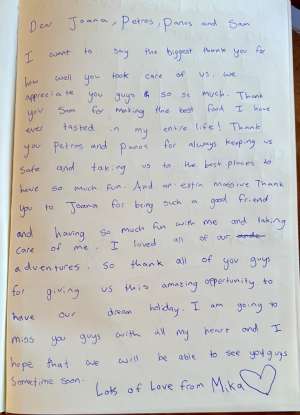 Dear Joana, Petros, Panos and Sam
I want to say the biggest thank you for
how well you took care of us. we
appreciate you guys so so much. Thank
you Sam for making the best food I have
ever tasted in my entire life! Thank
you Petros and Panos for always keeping us
safe and taking us to the best places to
have so much fun. And an extra massive Thank
you to Joana for being such a good friend
and having so much fun with me and taking
care of me. I loved all of our
adventures. So thank all of you guys
for giving us this amazing opportunity to
have our dream holiday. I am going to
miss you guys with all my heart and I
hope that we will be able to see you guys
Sometime soon.
Lots of Love from Mika